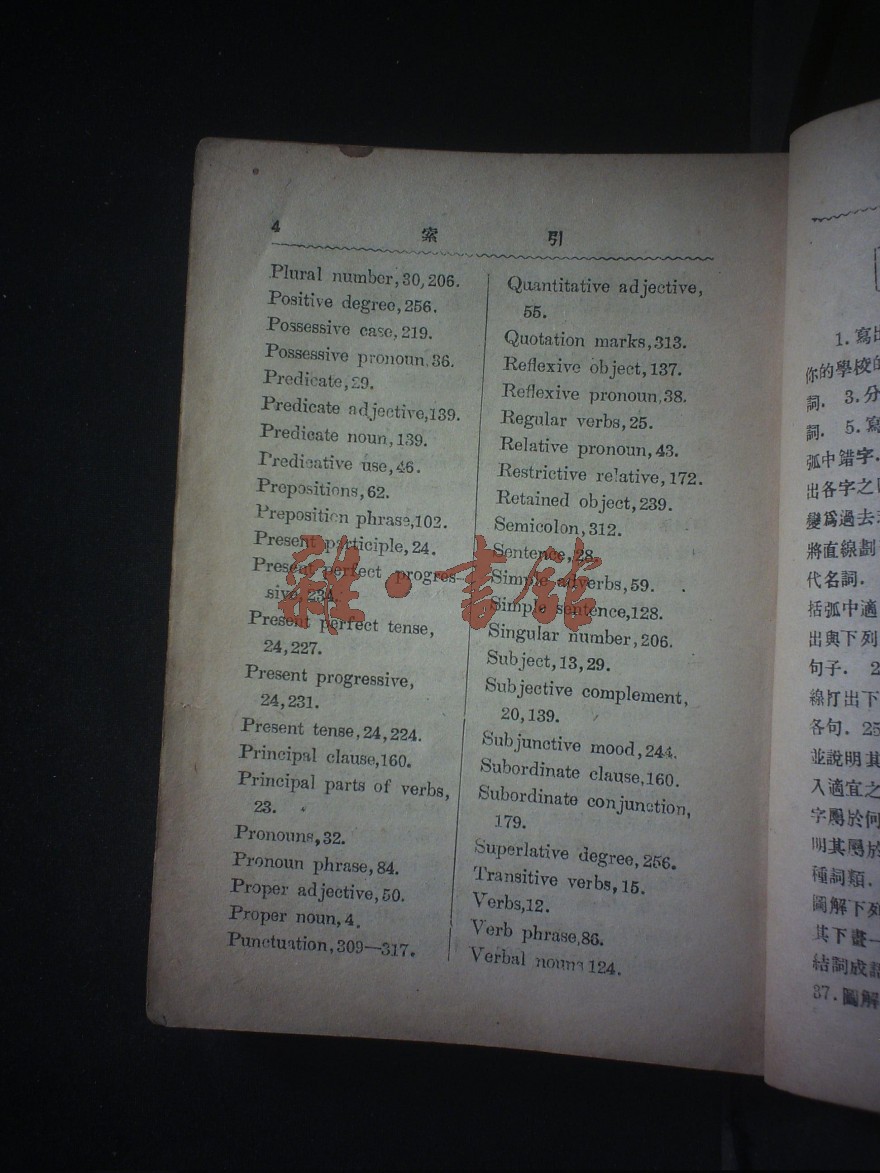 4
索 引
Plural number, 30, 206.
Positive degree, 256.
Possessive case, 219.
Possessive pronoun, 36.
Predicate, 29.
Predicate adjective, 139.
Predicate noun, 139.
Predicative use, 46.
Prepositions, 62.
Preposition phrase, 102.
Present participle, 24.
Present perfect progres-
sive, 234.
Present perfect tense,
24, 227.
Present progressive,
24, 231.
Present tense, 24, 224.
Principal clause, 160.
Principal parts of verbs,
23.
Pronouns, 32.
Pronoun phrase, 84.
Proper adjective, 50.
Proper noun, 4.
Punctuation, 309—317.
Quantitative adjective,
55.
Quotation marks, 313.
Reflexive object, 137.
Reflexive pronoun, 38.
Regular verbs, 25.
Relative pronoun, 43.
Restrictive relative, 172.
Retained object, 239.
Semicolon, 312.
Sentence, 28.
Simple adverbs, 59.
Simple sentence, 128.
Singular number, 206.
Subject, 13, 29.
Subjective complement,
20, 139.
Subjunctive mood, 244.
Subordinate clause, 160.
Subordinate conjunction,
179.
Superlative degree, 256.
Transitive verbs, 15.
Verbs, 12.
Verb phrase, 86.
Verbal nouns 124.
雜·書館
1. 寫出
你的學校的
詞. 3. 分
詞. 5. 寫
弧中錯字.
出各字之
變爲過去
將直線劃
代名詞.
括弧中適
出與下列
句子. 2
線打出下
各句. 25
並說明其
入適宜之
字屬於何
明其屬於
種詞類.
圖解下列
其下畫一
結詞成語
37. 圖解